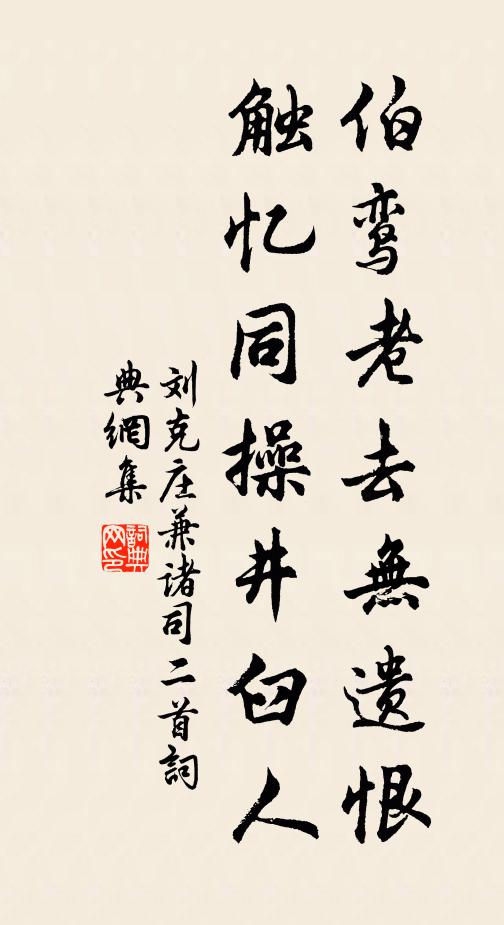 伯鸾老去無遗恨
触忆同操井臼人
刘克庄兼诸司二首詞
典網集
詞典
网印